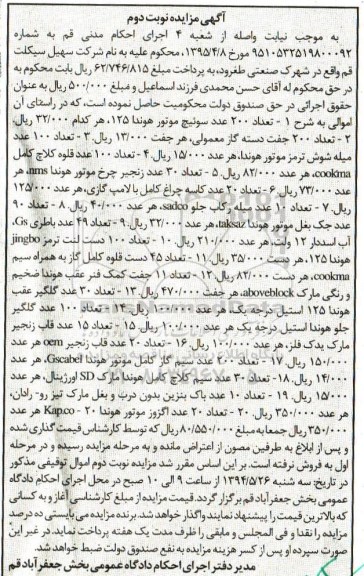 آگهی مزایده نوبت دوم
به موجب نیابت واصله از شعبه ۴ اجرای احکام مدنی قم به شماره
۹۵۱۰۵۳۲۵۱۹۸۰۰۰۹۲ مورخ ۱۳۹۵/۴/۸، محکوم علیه به نام شرکت سهیل سیکلت
قم واقع در شهرک صنعتی طغرود، به پرداخت مبلغ ۶۲/۷۴۶/۸۱۵ ریال بابت محکوم به
در حق محکوم له آقای حسن محمدی فرزند اسماعیل و مبلغ ۵۰۰/۰۰۰ ریال به عنوان
حقوق اجرائی در حق صندوق دولت محکومیت حاصل نموده است، که در راستای آن
اموالی به شرح ۱ - تعداد ۲۰۰ عدد سوئیچ موتور هوندا ۱۲۵، هر کدام ۳۲/۰۰۰ ریال،
۲ - تعداد ۲۰۰ جفت دسته گاز معمولی، هر جفت ۱۳/۰۰۰ ریال ۳ - تعداد ۱۰۰ عدد
میله شوش ترمز موتور هوندا، هر عدد ۱۵/۰۰۰ ریال ۴ - تعداد ۱۰۰ عدد قلوه کلاچ کامل
cookma، هر عدد ۸۲/۰۰۰ ریال ۵ - تعداد ۳۰ عدد زنجیر چرخ موتور هوندا nms، هر
عدد ۷۳/۰۰۰ ریال ۶ - تعداد ۲۰ عدد کاسه چراغ کامل با لامپ گازی، هر عدد ۱۲۵/۰۰۰
ریال ۷ - تعداد ۱۰ عدد میله رکاب جلو sadco، هر عدد ۴۰/۰۰۰ ریال ۸ - تعداد ۹۰
عدد جک بغل موتور هوندا taksaz، هر عدد ۳۲/۰۰۰ ریال ۹ - تعداد ۴۹ عدد باطری Gs،
آب اسیددار ۱۲ ولت، هر عدد ۲۱۰/۰۰۰ ریال ۱۰ - تعداد ۱۰۰ دست لنت ترمز jingbo
هوندا ۱۲۵، هر دست ۳۵/۰۰۰ ریال ۱۱ - تعداد ۴۵ دست قلوه کامل گاز به همراه سیم
cookma، هر دست ۸۲/۰۰۰ ریال ۱۲ - تعداد ۱۱ جفت کمک فنر عقب هوندا ضخیم
و رنگی مارک aboveblock، هر جفت ۴۷۰/۰۰۰ ریال ۱۳ - تعداد ۳۰ عدد گلگیر عقب
هوندا ۱۲۵ استیل درجه یک هر عدد ریال ۱۴ - تعداد ۱۰۰ عدد گلگیر
جلو هوندا استیل درجه یک هر عدد ۱۰۰/۰۰۰ ریال ۱۵ - تعداد ۱۵ عدد قاب زنجیر
مارک یدک فلز، هر عدد ۱۰۰/۰۰۰ ریال ۱۶ - تعداد ۲۰ عدد قاب زنجیر oem هر عدد
۱۵۰/۰۰۰ ریال ۱۷ - تعداد ۲۰۰ عدد سیم گاز کامل موتور هوندا Gscabel، هر عدد
۱۴/۰۰۰ ریال ۱۸ - تعداد ۳۰ عدد سیم کلاچ کامل هوندا مارک SD اورژینال، هر عدد
۱۵/۰۰۰ ریال ۱۹ - تعداد ۱۰ عدد باک بنزین بدون درب و بغل مارک تیز رو - رادان،
هر عدد ۳۵۰/۰۰۰ ریال ۲۰ - تعداد ۲۰ عدد اگزوز موتور هوندا ۲۰ - Kap.co هر عدد
۳۵۰/۰۰۰ ریال جمعا به مبلغ ۸۰/۵۵۰/۰۰۰ ریال که توسط کارشناس قیمت گذاری شده
و پس از ابلاغ به طرفین مصون از اعتراض مانده و به مرحله مزایده رسیده و در مرحله
اول به فروش نرفته است. بر این اساس مقرر شد مزایده نوبت دوم اموال توقیفی مذکور
در تاریخ: سه شنبه ۱۳۹۴/۵/۲۶ از ساعت ۹ الی ۱۰ صبح در محل اجرای احکام دادگاه
عمومی بخش جعفرآباد قم برگزار گردد. قیمت مزایده از مبلغ کارشناسی آغاز و به کسانی
که بالاترین قیمت را پیشنهاد نمایند واگذار خواهد شد. برنده مزایده می بایستی ده درصد
مزایده را نقدا و فی المجلس و مابقی را ظرف مدت یک هفته پرداخت نماید. در غیر این
صورت سپرده او پس از کسر هزینه مزایده به نفع صندوق دولت ضبط خواهد شد.
مدیر دفتر اجرای احکام دادگاه عمومی بخش جعفرآباد قم